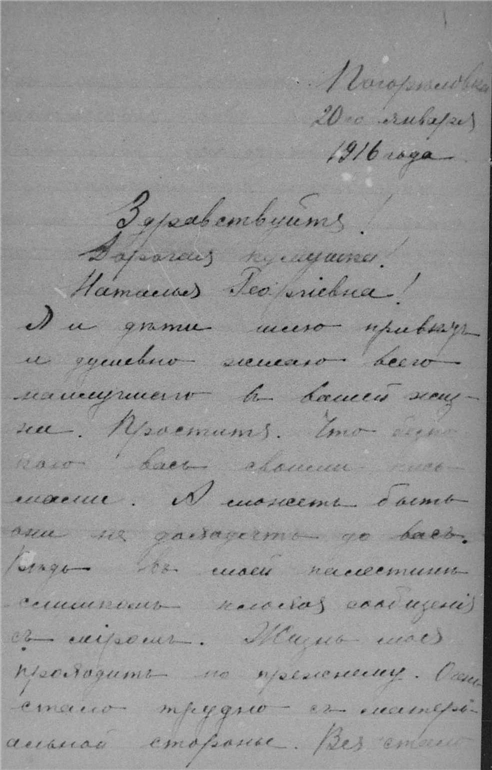 Погорѣловка
20го января
1916 года
Здравствуйтя!
Дорогая кумушка!
Наталья Георгіевна!
Я и дѣти шлю привѣтъ
и душевно желаю всего
наилучшего въ вашей жиз-
ни. Проститя. Что безпо
кою васъ своими пись
мами. А можетъ быть
они не доходють до васъ.
Вѣдь въ моей палестинѣ
слишкомъ плохоя сообщенія
съ міромъ. Жизнь моя
проходить по прежнему.
стало трудно съ матері-
альной стороны. Вся стало